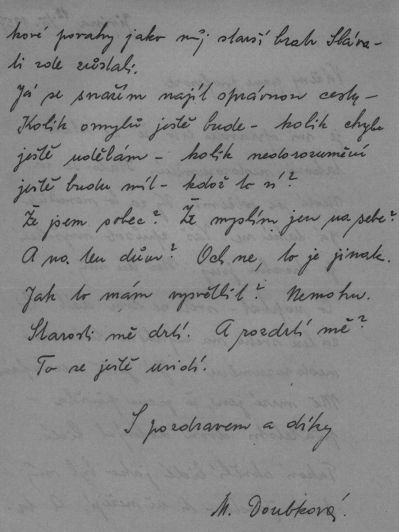 kové povahy jako můj starší bratr Sláva-
li zde zůstali.
Já se snažím najít správnou cestu -
Kolik omylů ještě bude - kolik chyb
ještě udělám - kolik nedorozumění
ještě budu mít - kdož to ví?
Že jsem sobec? Že myslím jen na sebe?
A na ten dům? Och ne, to je jinak.
Jak to mám vysvětlit? Nemohu.
Starosti mě drtí. A rozdrtí mě?
To se ještě uvidí.
S pozdravem a díky
M. Doubková.